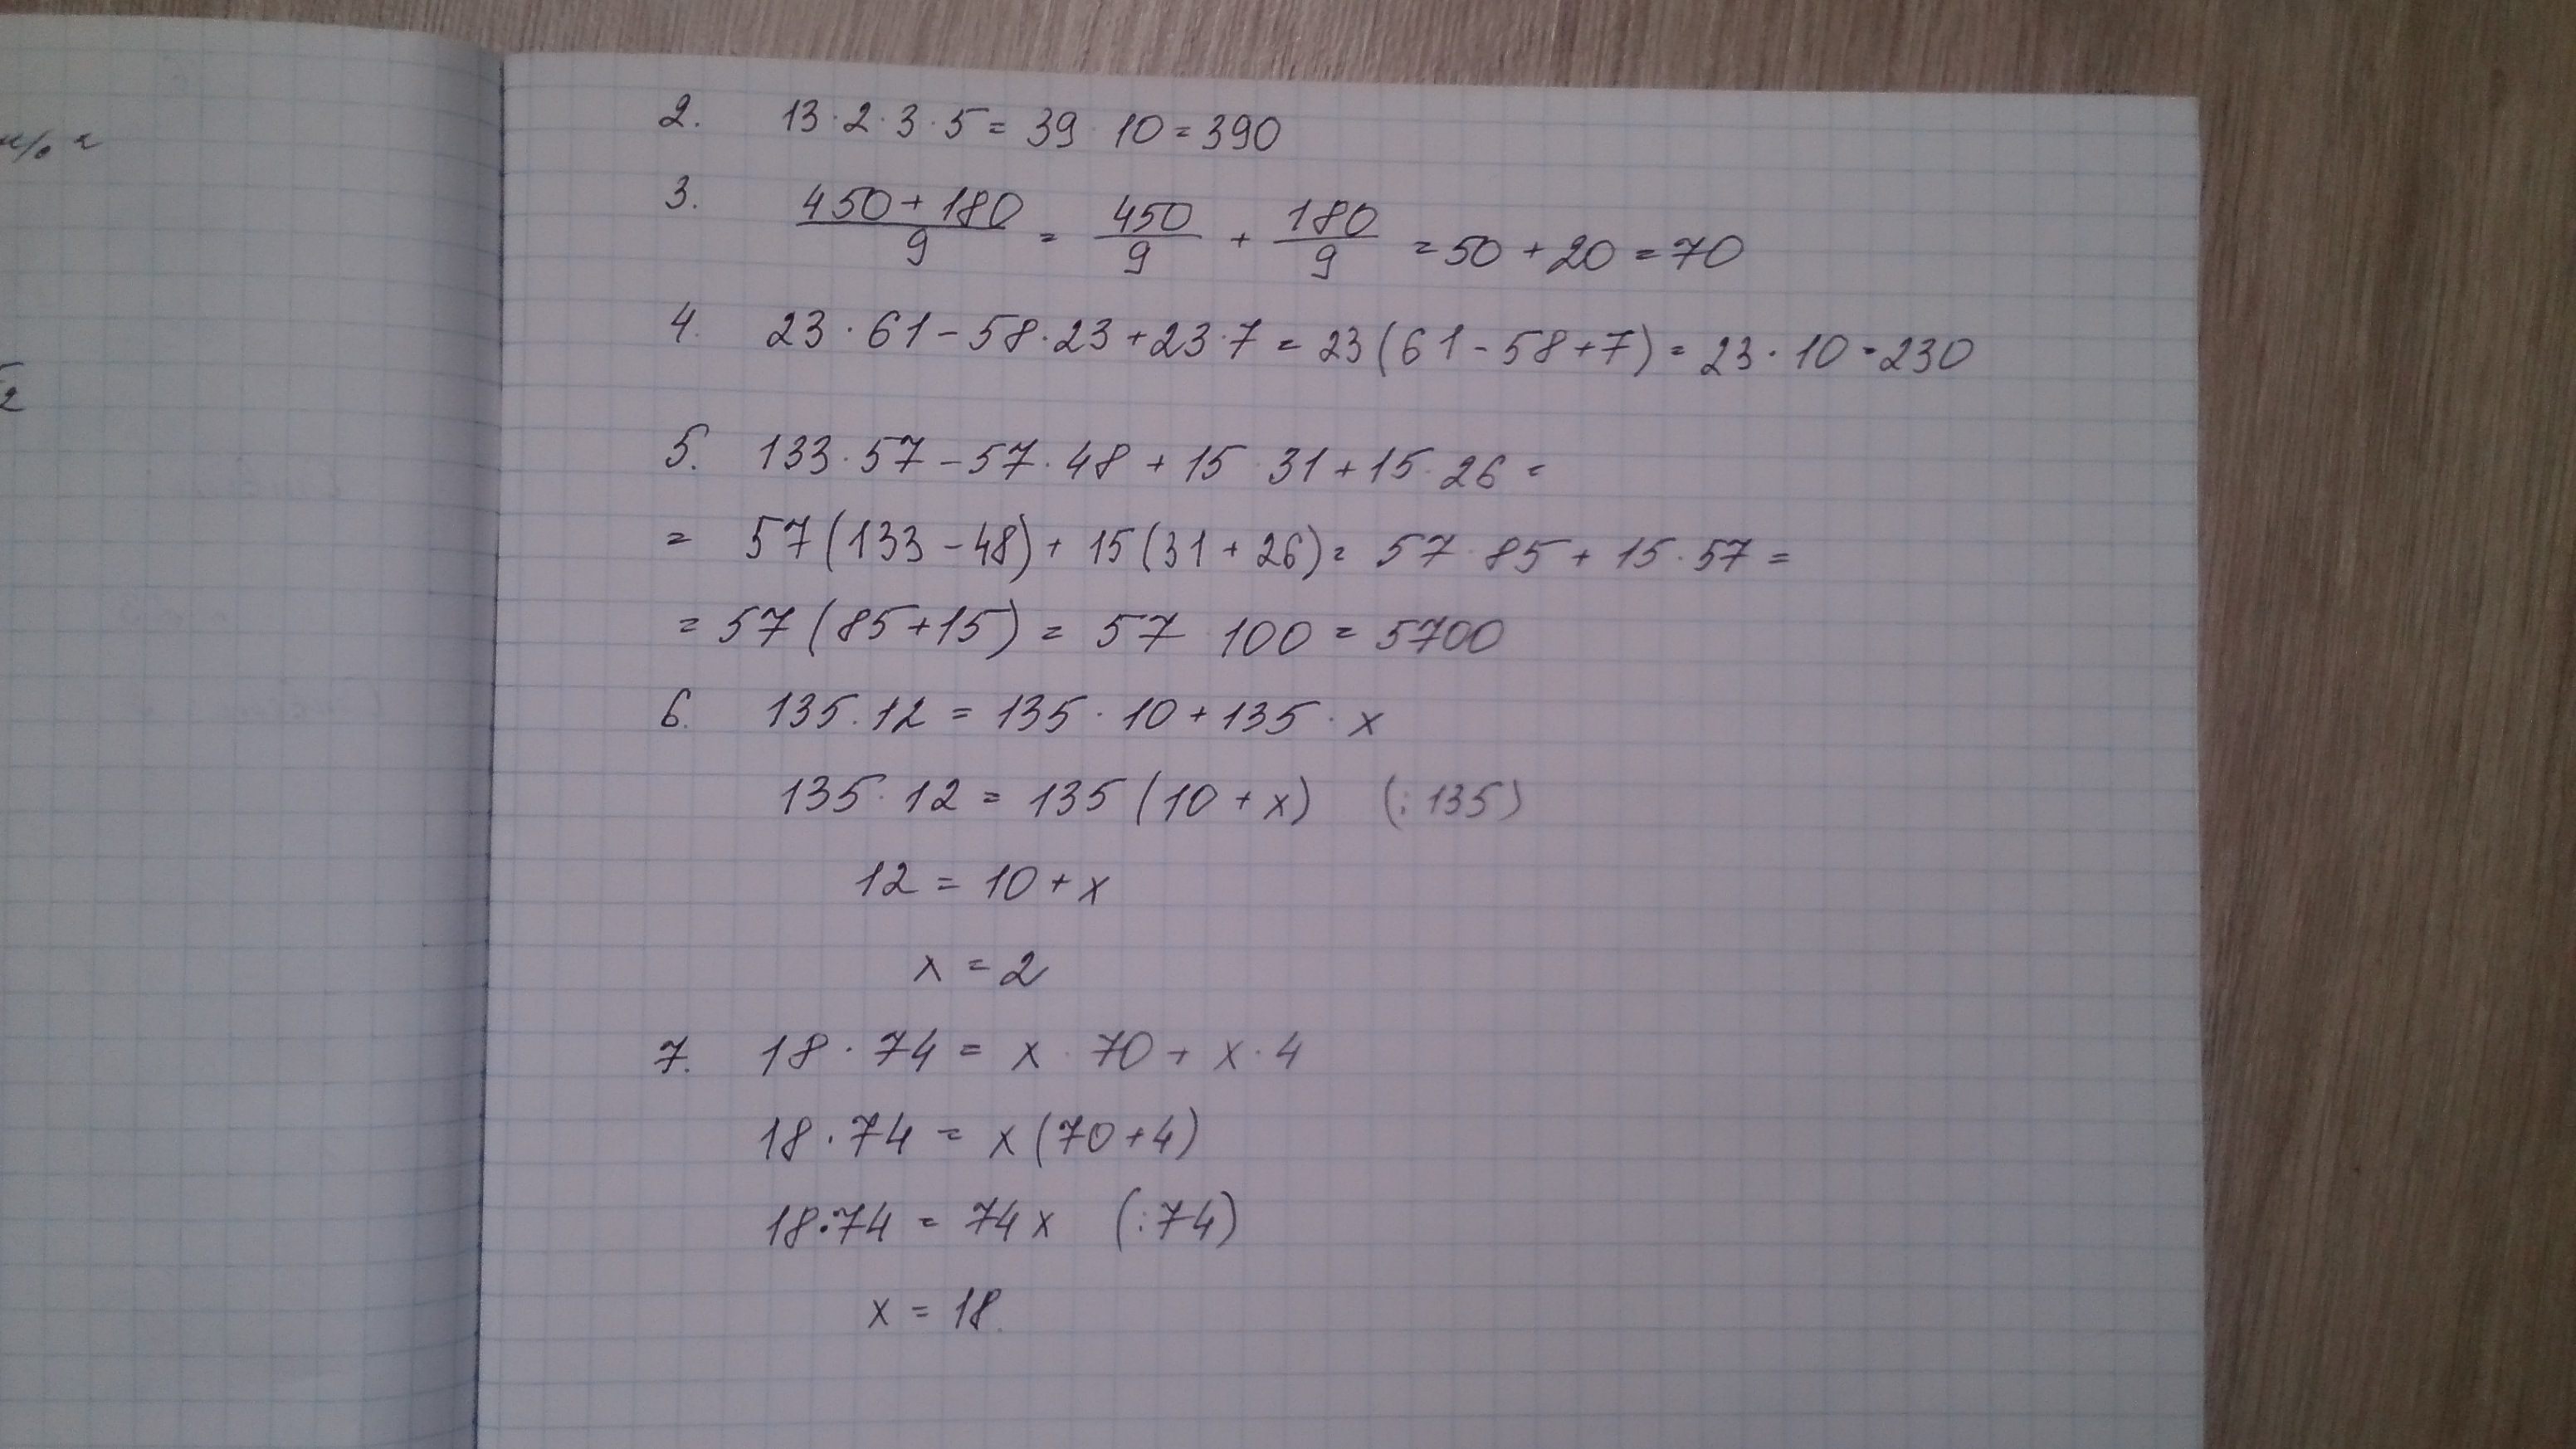 2. 13·2·3·5 = 39·10 = 390
3. (450+180)/9 = 450/9 + 180/9 = 50 + 20 = 70
4. 23·61 - 58·23 + 23·7 = 23(61 - 58 + 7) = 23·10 = 230
5. 133·57 - 57·48 + 15·31 + 15·26 =
= 57(133 - 48) + 15(31 + 26) = 57·85 + 15·57 =
= 57(85 + 15) = 57 100 = 5700
6. 135·12 = 135·10 + 135·x
135·12 = 135(10 + x) (:135)
12 = 10 + x
x = 2
7. 18·74 = x·70 + x·4
18·74 = x(70 + 4)
18·74 = 74x (:74)
x = 18.